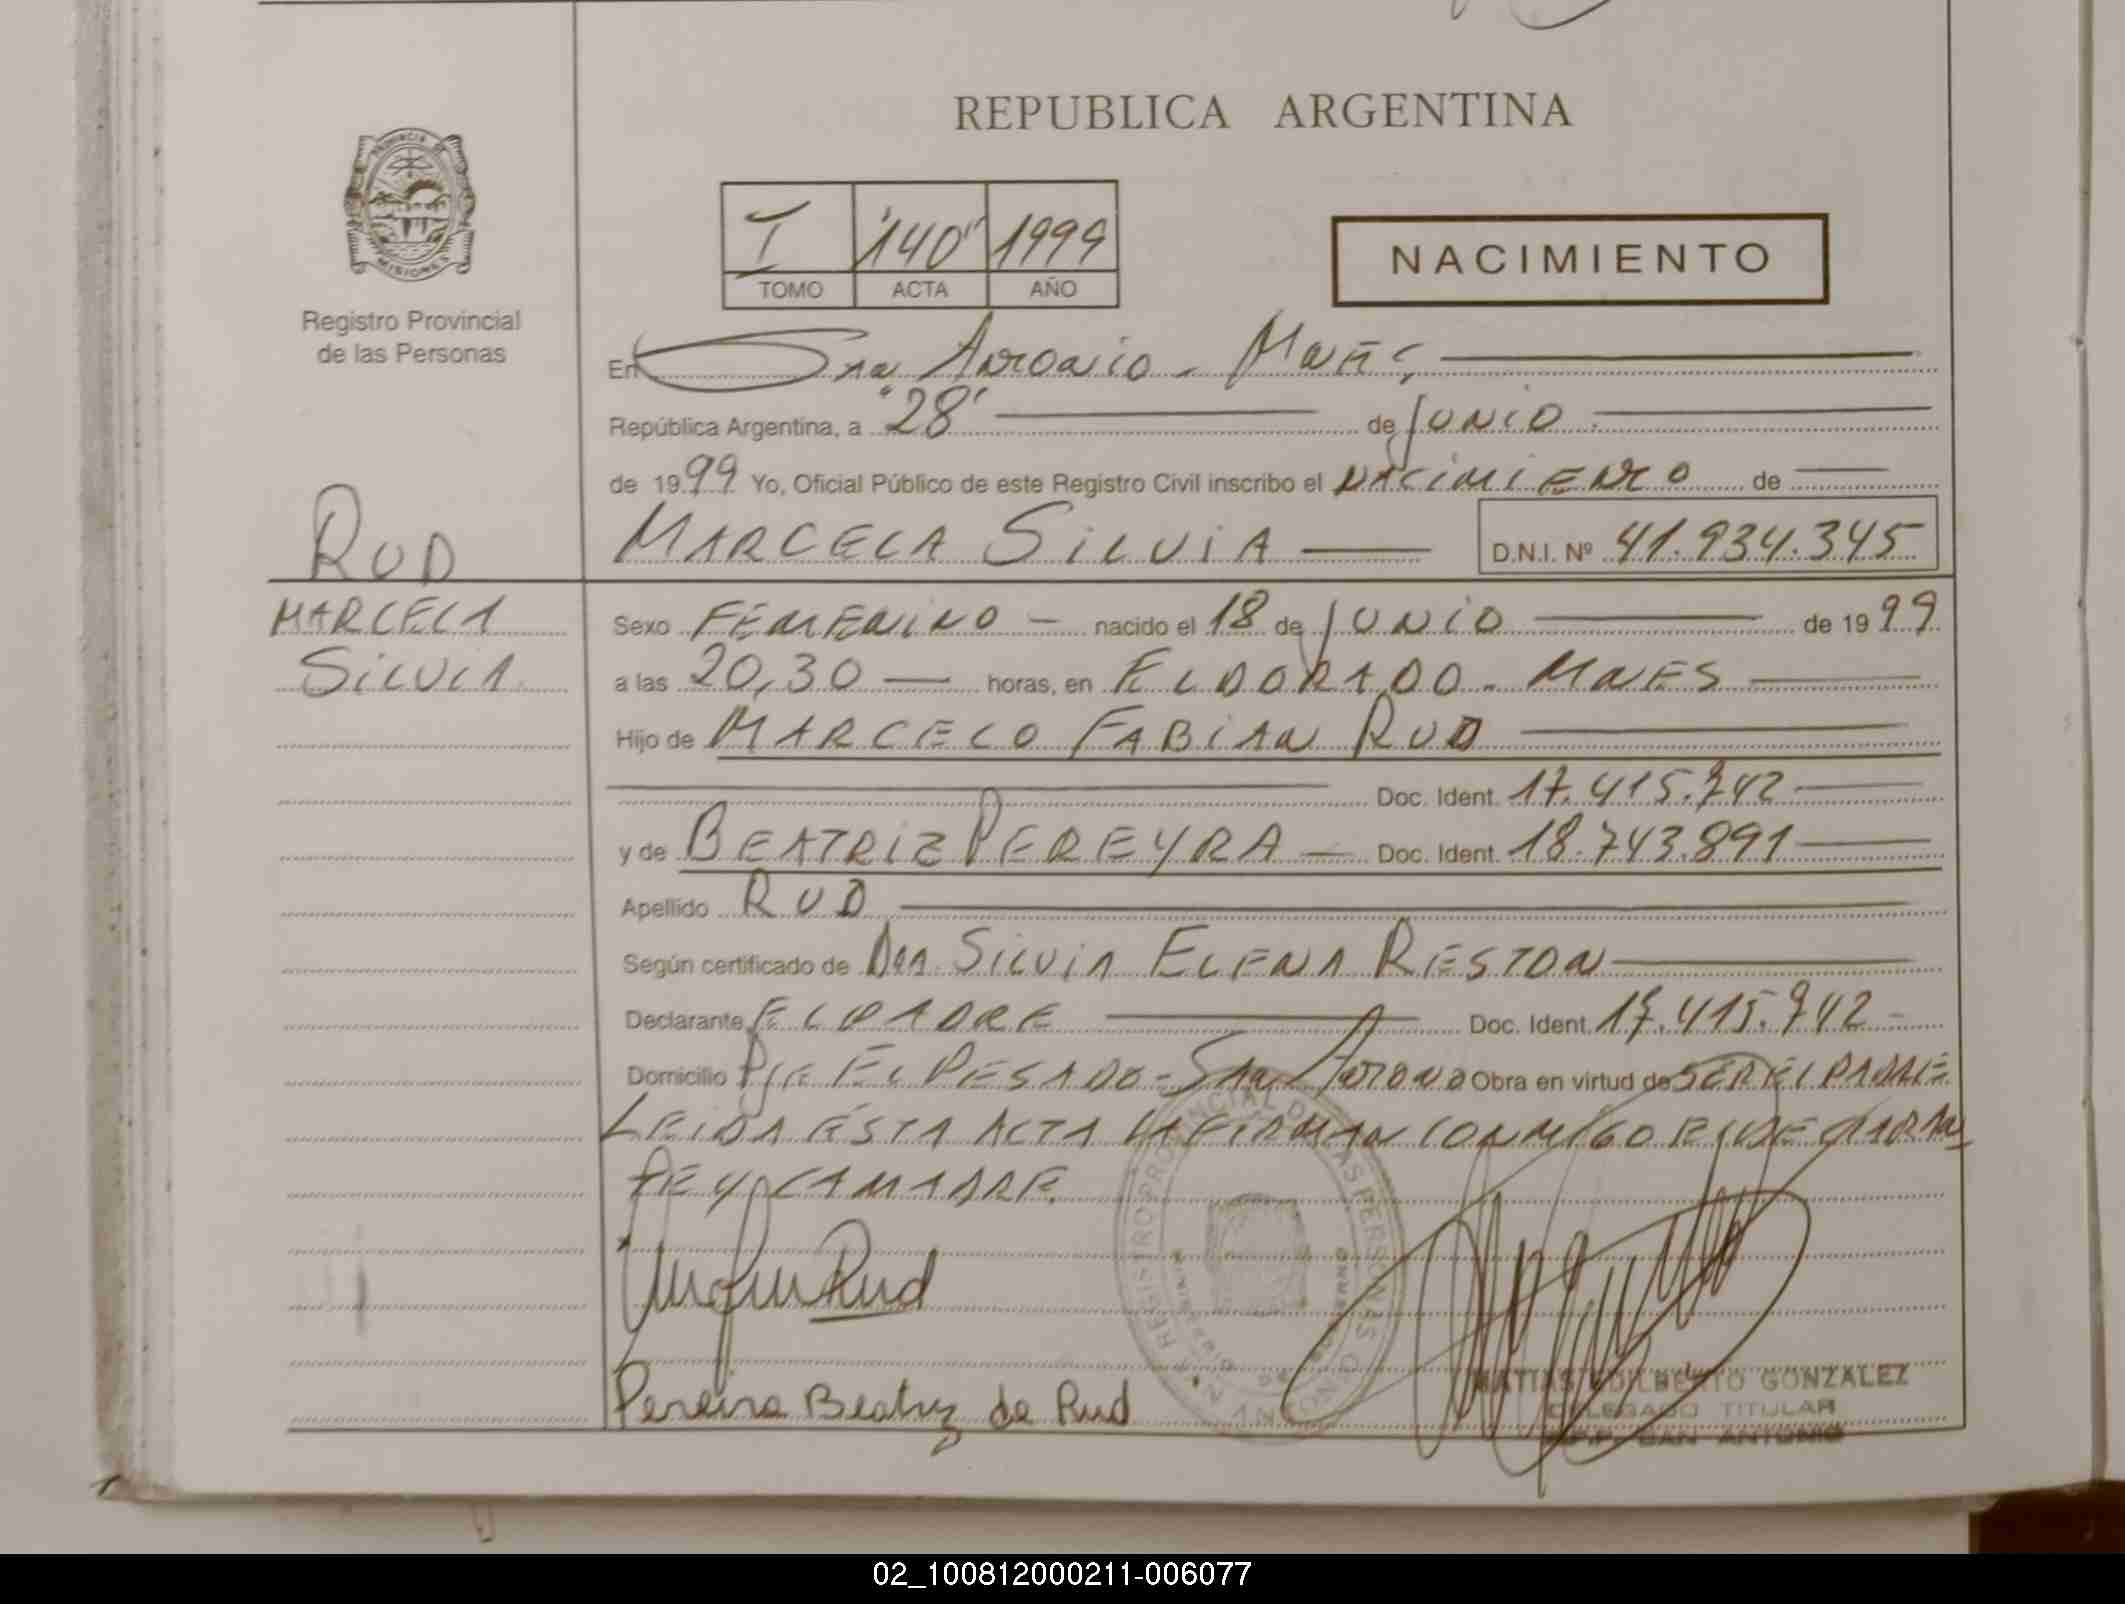 REPUBLICA ARGENTINA
PROVINCIA DE
MISIONES
Registro Provincial
de las Personas
I "140" 1999
TOMO ACTA AÑO
NACIMIENTO
En San Antonio - Mnes,
República Argentina, a "28" de JUNIO
de 1999 Yo, Oficial Público de este Registro Civil inscribo el NACIMIENTO de
RUD
MARCELA SILVIA D.N.I. Nº 41.934.345
MARCELA
SILVIA
Sexo FEMENINO - nacido el 18 de JUNIO de 1999
a las 20,30 horas, en ELDORADO - MNES
Hijo de MARCELO FABIAN RUD
Doc. Ident. 17.415.742
y de BEATRIZ PEREYRA Doc. Ident. 18.743.891
Apellido RUD
Según certificado de Dra. SILVIA ELENA RESTON
Declarante EL PADRE Doc. Ident. 17.415.742
Domicilio Pje EL PESADO - SAN ANTONIO Obra en virtud de SER EL PADRE
LEIDA ESTA ACTA LA FIRMAN CONMIGO EL DECLARAN
TE Y LA MADRE.
Rud
Pereira Beatriz de Rud
REGISTRO PROVINCIAL DE LAS PERSONAS
SAN ANTONIO
MATIAS GONZALEZ
DELEGADO TITULAR
SAN ANTONIO
02_100812000211-006077